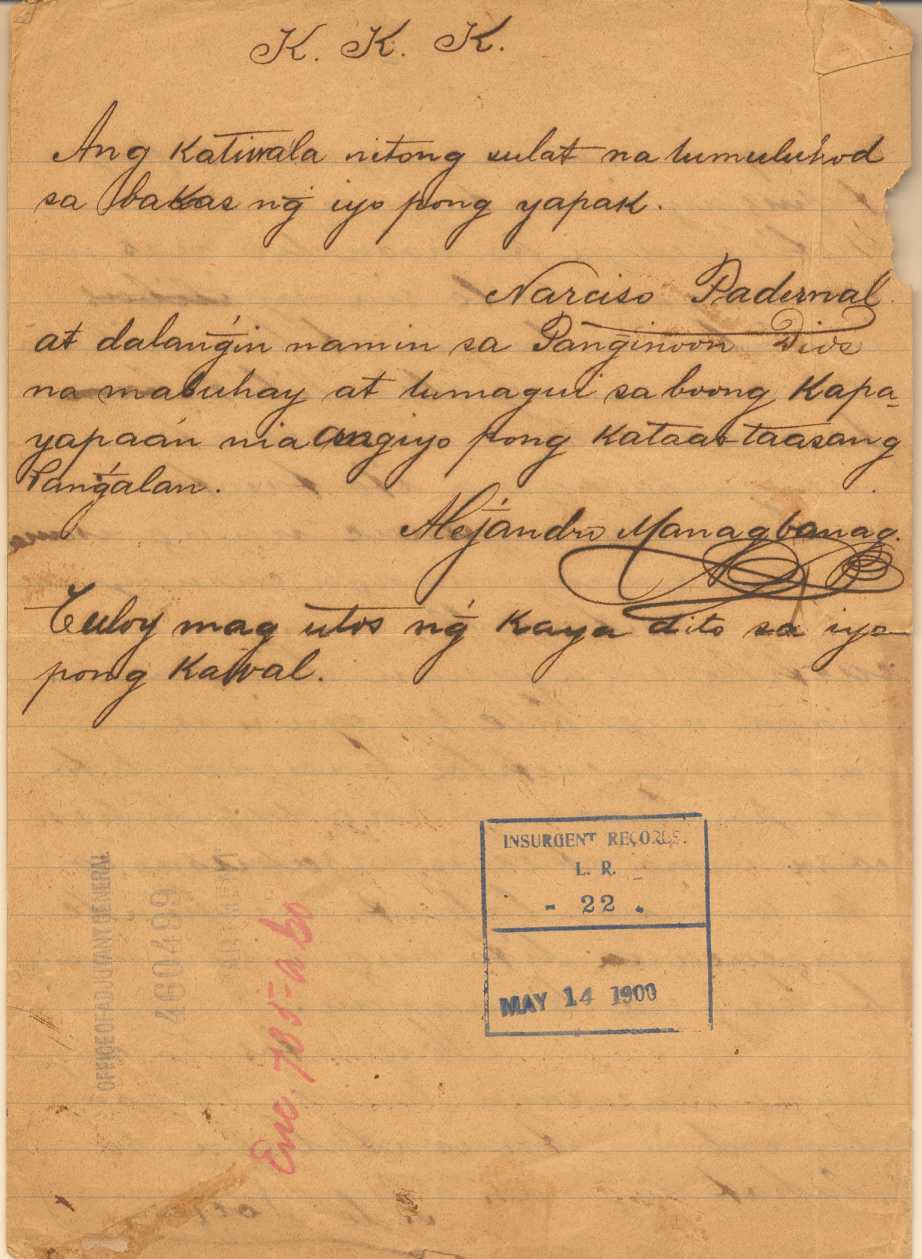 K. K. K.
Ang Katiwala nitong sulat na lumuluhod
sa bakas ng̃ iyo pong yapak.
Narciso Padernal
at dalang̃in namin sa Panginoon Dios
na mabuhay at lumagui sa boong Kapa-
yapaán nia ang iyo pong Kataas-taasang
Pang̃alan.
Alejandro Managbanag.
Tuloy mag utos ng̃ Kaya dito sa iyo
pong Kawal.
INSURGENT RECORDS.
L. R.
- 22 .
MAY 14 1900
OFFICE OF ADJUTANT GENERAL
460499
Enc. 785-a 60